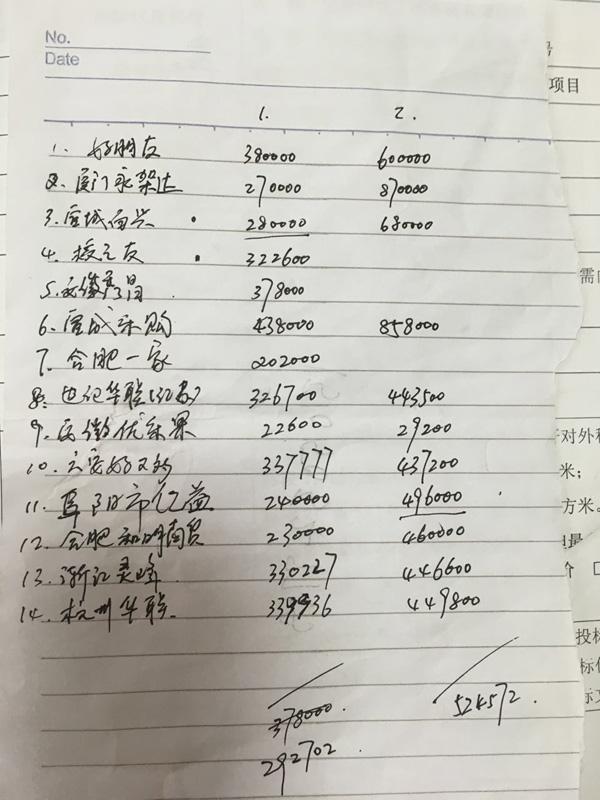 No.
Date
1. 2.
1. 好朋友 380000 600000
2. 厦门永架达 270000 870000
3. 宣城向兴 280000 680000
4. 322600
5. 安徽 378000
6. 采购 438000 858000
7. 合肥一家 202000
8. 世纪华联 326700 443500
9. 安徽优采果 22600 29200
10. 六安好又 337777 437200
11. 阜阳市亿益 240000 496000
12. 合肥和明商贸 230000 460000
13. 浙江灵峰 330227 446600
14. 杭州华联 339936 449800
378000. 524572.
292702.
号
项目
需
对外
米;
方米。
但最
价 □
投标
标
标